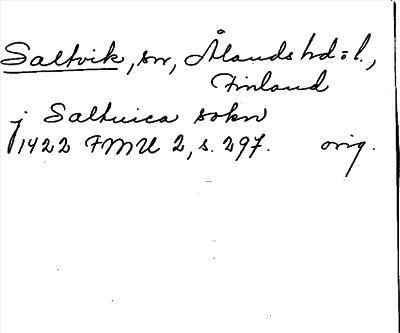 Saltvik, sn, Ålands hd o l.,
Finland
j Saltuica sokn
1422 FMU 2, s. 297. orig.